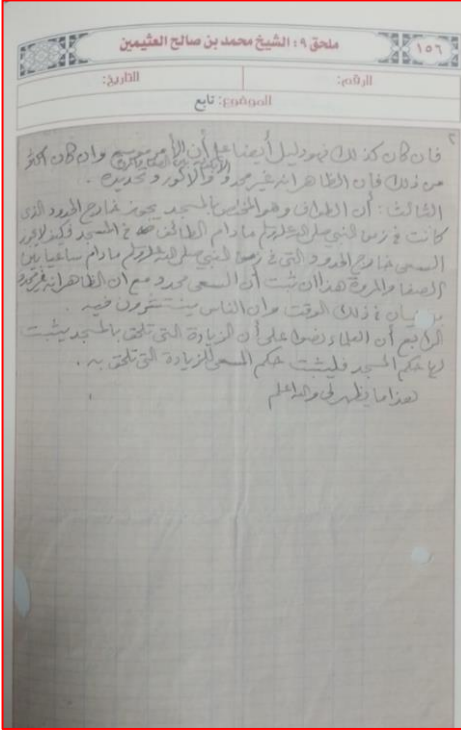 ١٥٦
ملحق ٩ : الشيخ محمد بن صالح العثيمين
الرقم: التاريخ:
الموضوع: تابع
٢
فإن كان كذلك فهو دليل أيضا على أن الأمر موسع وإن كان أكثر
من ذلك فإن الظاهر انه غير محدود والا لذكر وتحديده .
الثالث : أن الطواف وهو المختص بالمسجد يجوز خارج الحدود التي
كانت في زمن النبي صلى الله عليه وسلم ما دام الطائف في المسجد فكذلك يجوز
السعي خارج الحدود التي في زمن النبي صلى الله عليه وسلم ما دام ساعيا بين
الصفا والمروة هذا ان ثبت أن السعي محدد مع ان الظاهر انه غير محدد
في ذلك الوقت وان الناس ينتشرون فيه .
الرابع أن العلماء نصوا على أن الزيادة التي تلحق بالمسجد يثبت
لها حكم المسجد فليثبت حكم المسعى للزيادة التي تلحق به .
هذا ما يظهر لي والله اعلم